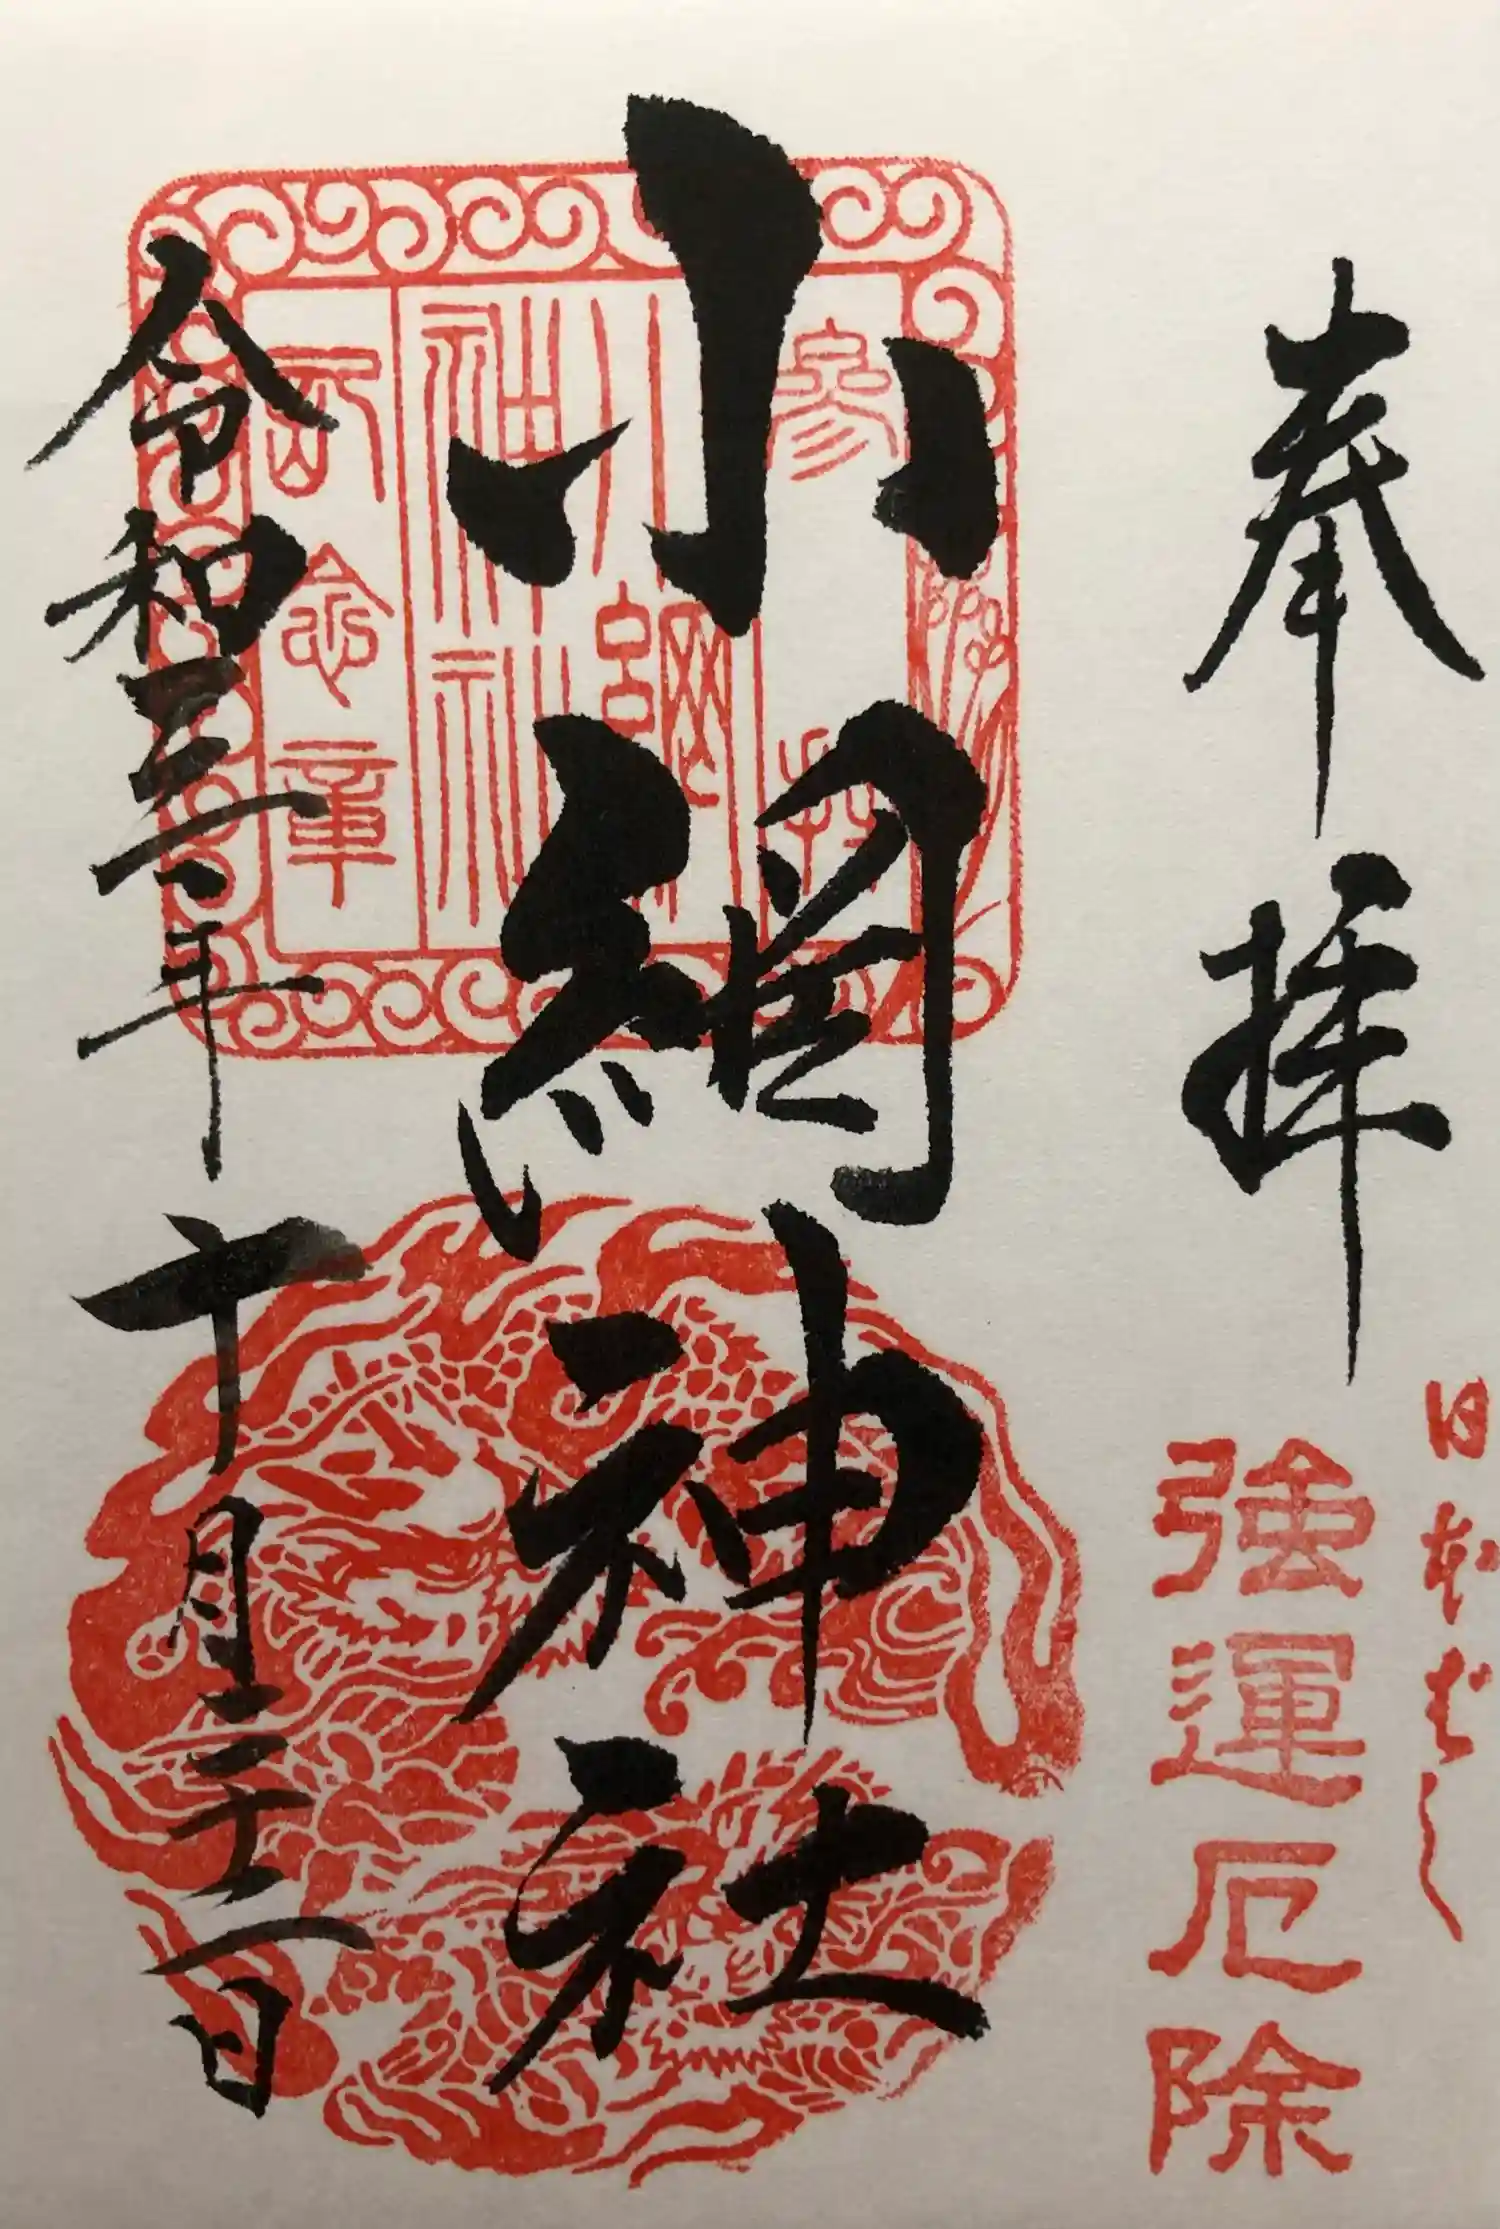 奉拝
日本ばし
強運厄除
小網神社
参拝
小網神社
念章
令和三年十月二十二日